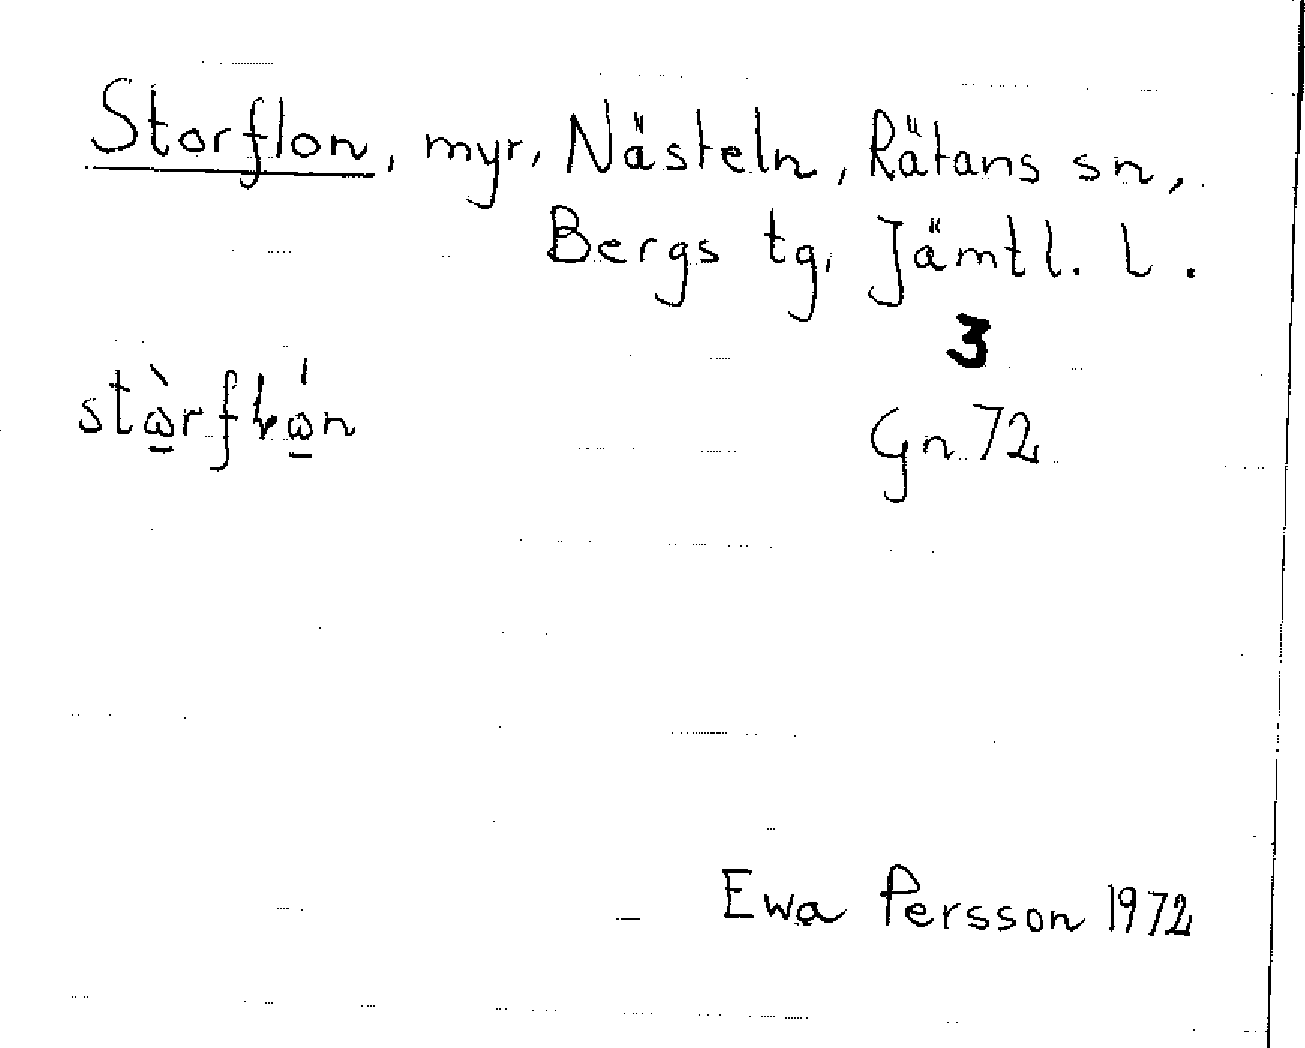 Storflon, myr, Nästeln, Rätans sn,
Bergs tg, Jämtl. l.
3
Gn 72
Ewa Persson 1972